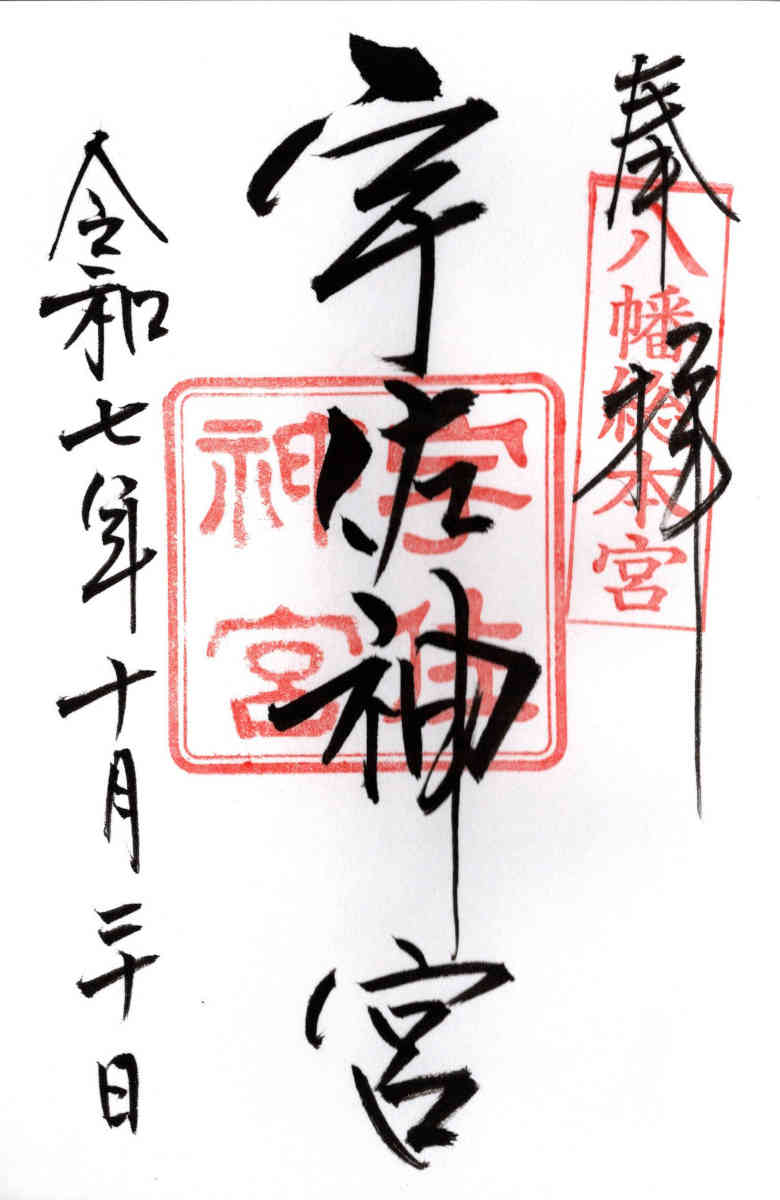 奉拝
八幡総本宮
宇佐神宮
宇佐神宮
令和七年十月二十日